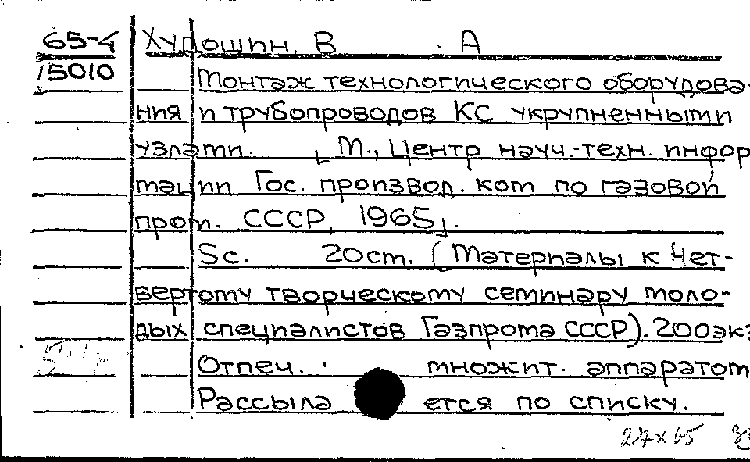 65-4 Худошин, В. А
15010 Монтаж технологического оборудова-
ния и трубопроводов КС укрупненными
узлами. [М., Центр науч.-техн. инфор
мации Гос. производ. ком по газовой
пром. СССР, 1965].
5с. 20см. (Материалы к Чет-
вертому творческому семинару моло-
дых специалистов Газпрома СССР). 200экз
Отпеч. множит. аппаратом
Рассыла ется по списку.